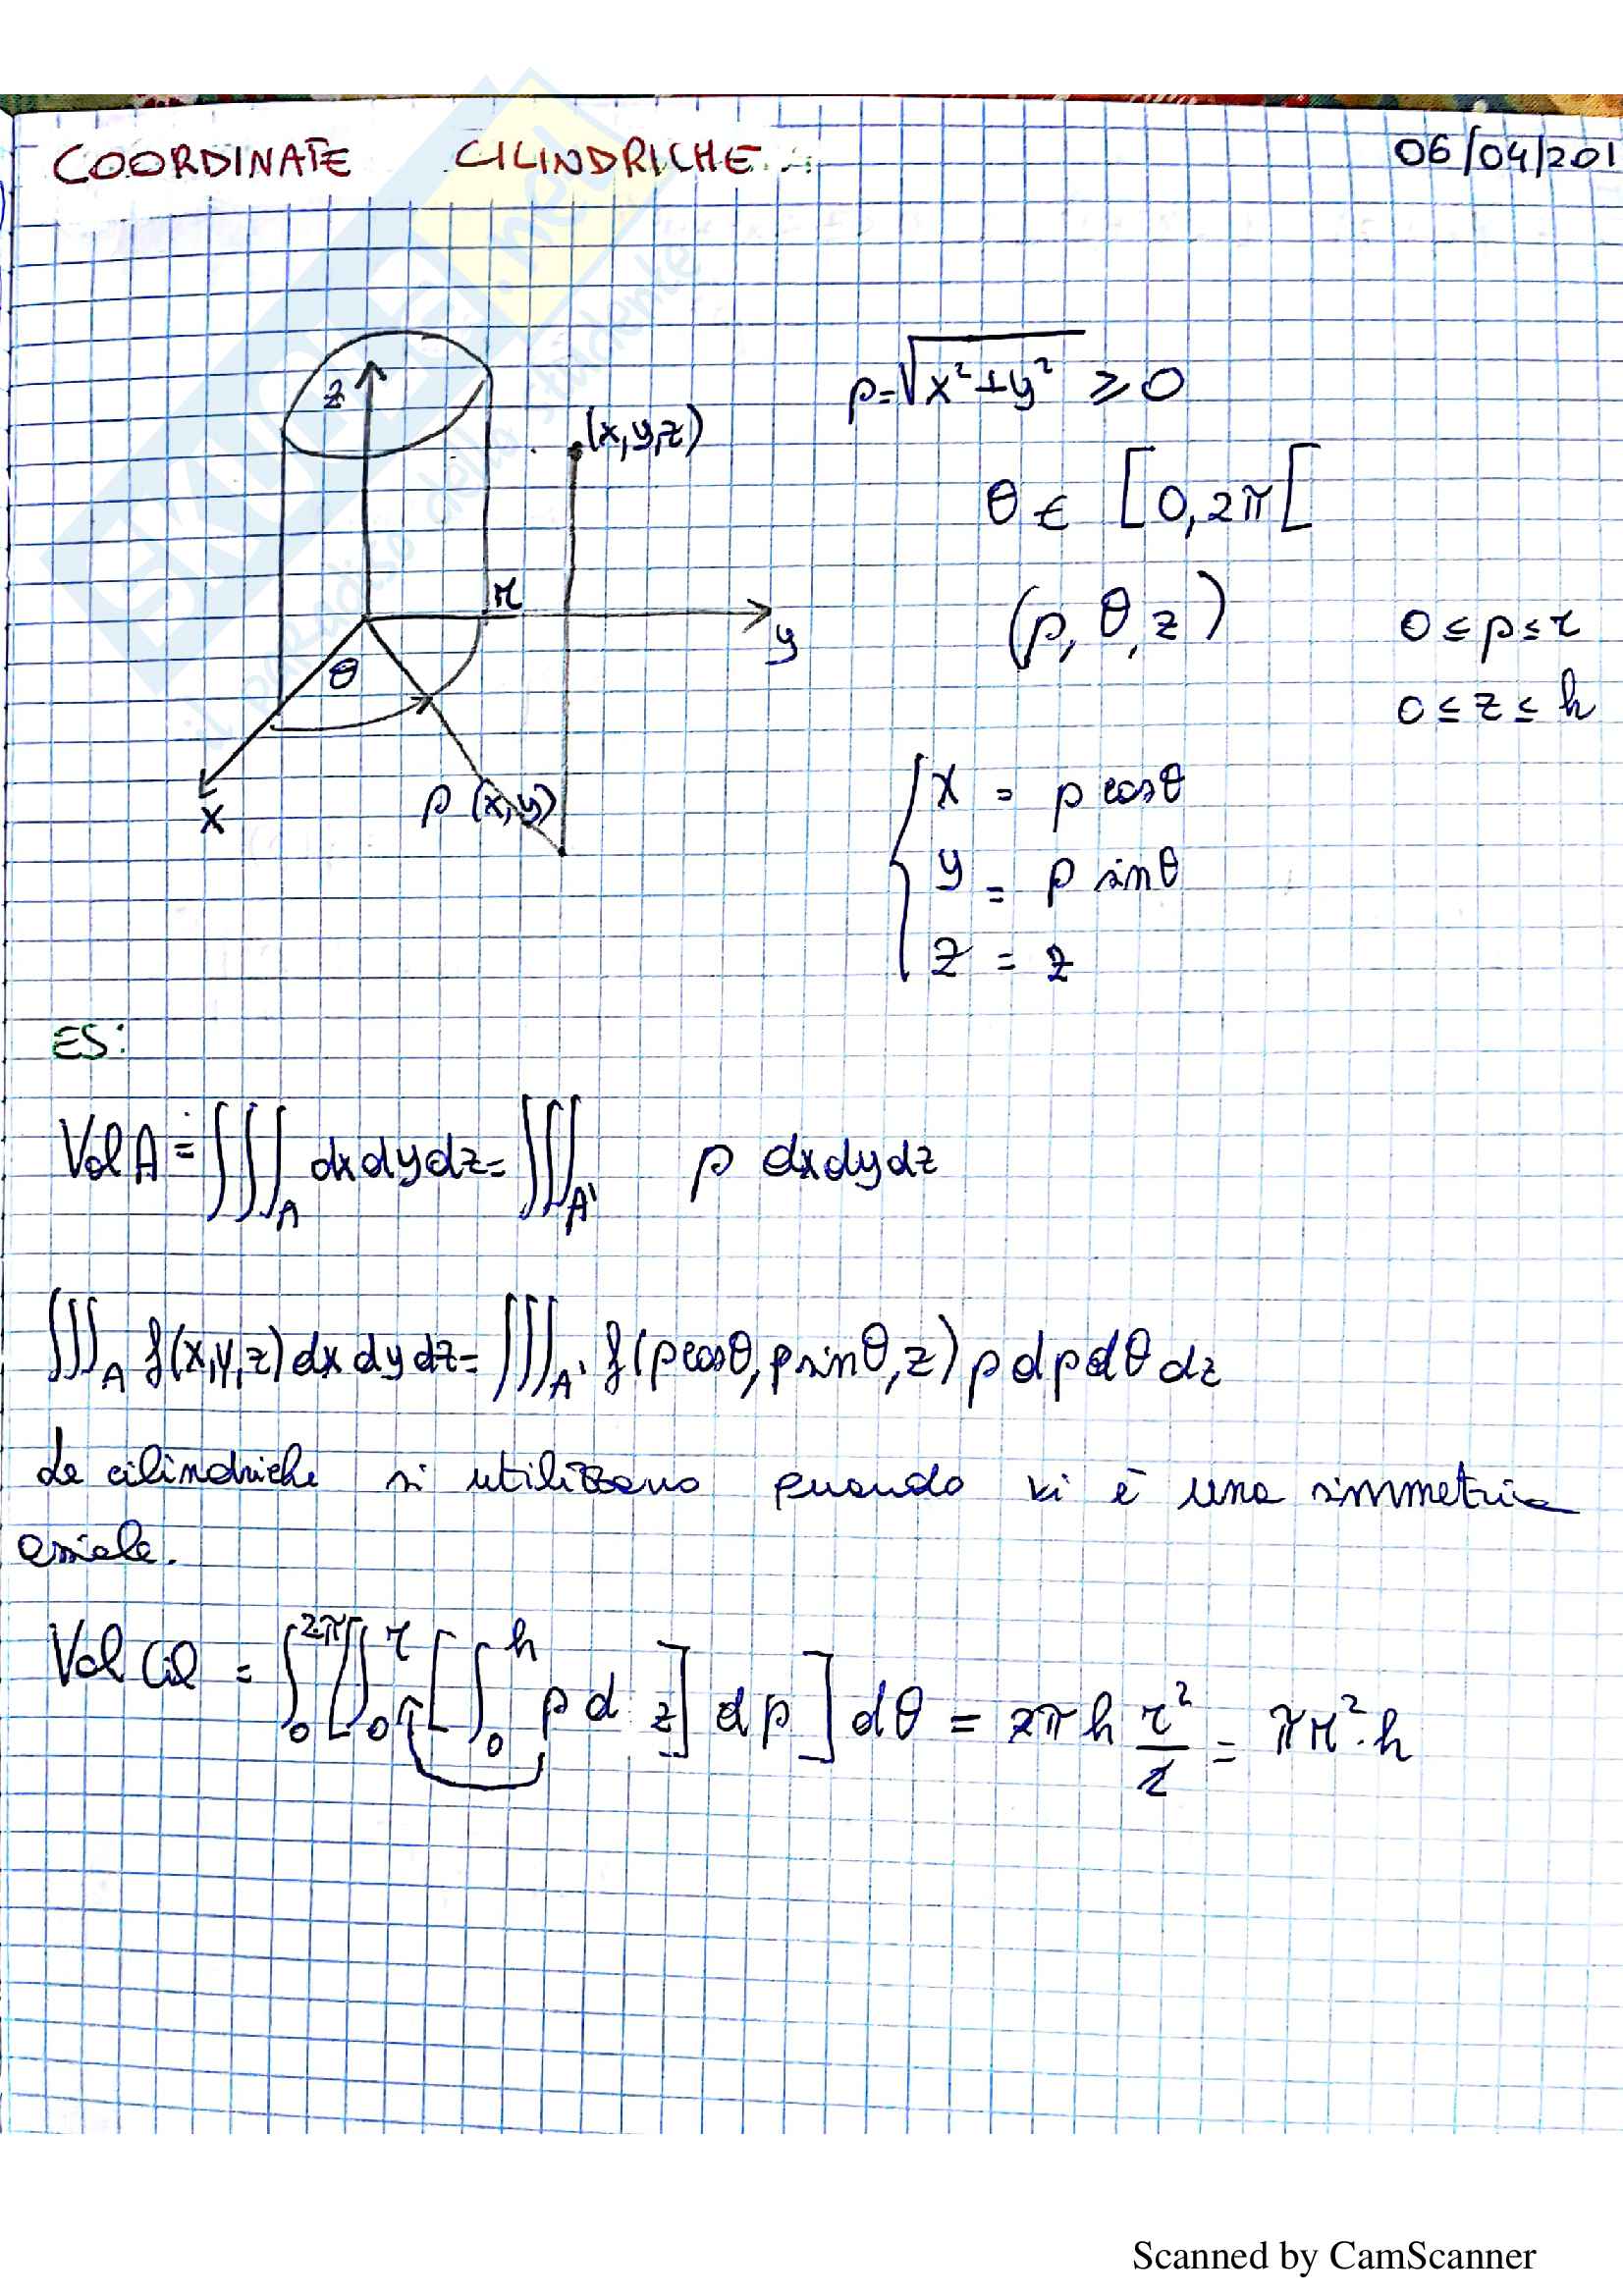 COORDINATE CILINDRICHE
06/04/201
SKUOLA.net
il paradiso dello studente
z
(x,y,z)
r
y
θ
x
ρ (x,y)
ρ=√x²+y² ≥ 0
θ ∈ [0,2π[
(ρ, θ, z)
0 ≤ ρ ≤ r
0 ≤ z ≤ h
x = ρ cosθ
y = ρ sinθ
z = z
ES:
Vol A = ∫∫∫_A dxdydz = ∫∫∫_A' ρ dxdydz
∫∫∫_A f(x,y,z) dxdydz = ∫∫∫_A' f(ρcosθ, ρsinθ, z) ρ dρ dθ dz
Le cilindriche si utilizzano quando vi è una simmetria
assiale.
Vol Cil = ∫₀^2π [∫₀^r [∫₀^h ρ d z] dρ] dθ = 2πh r²/2 = πr²·h
Scanned by CamScanner